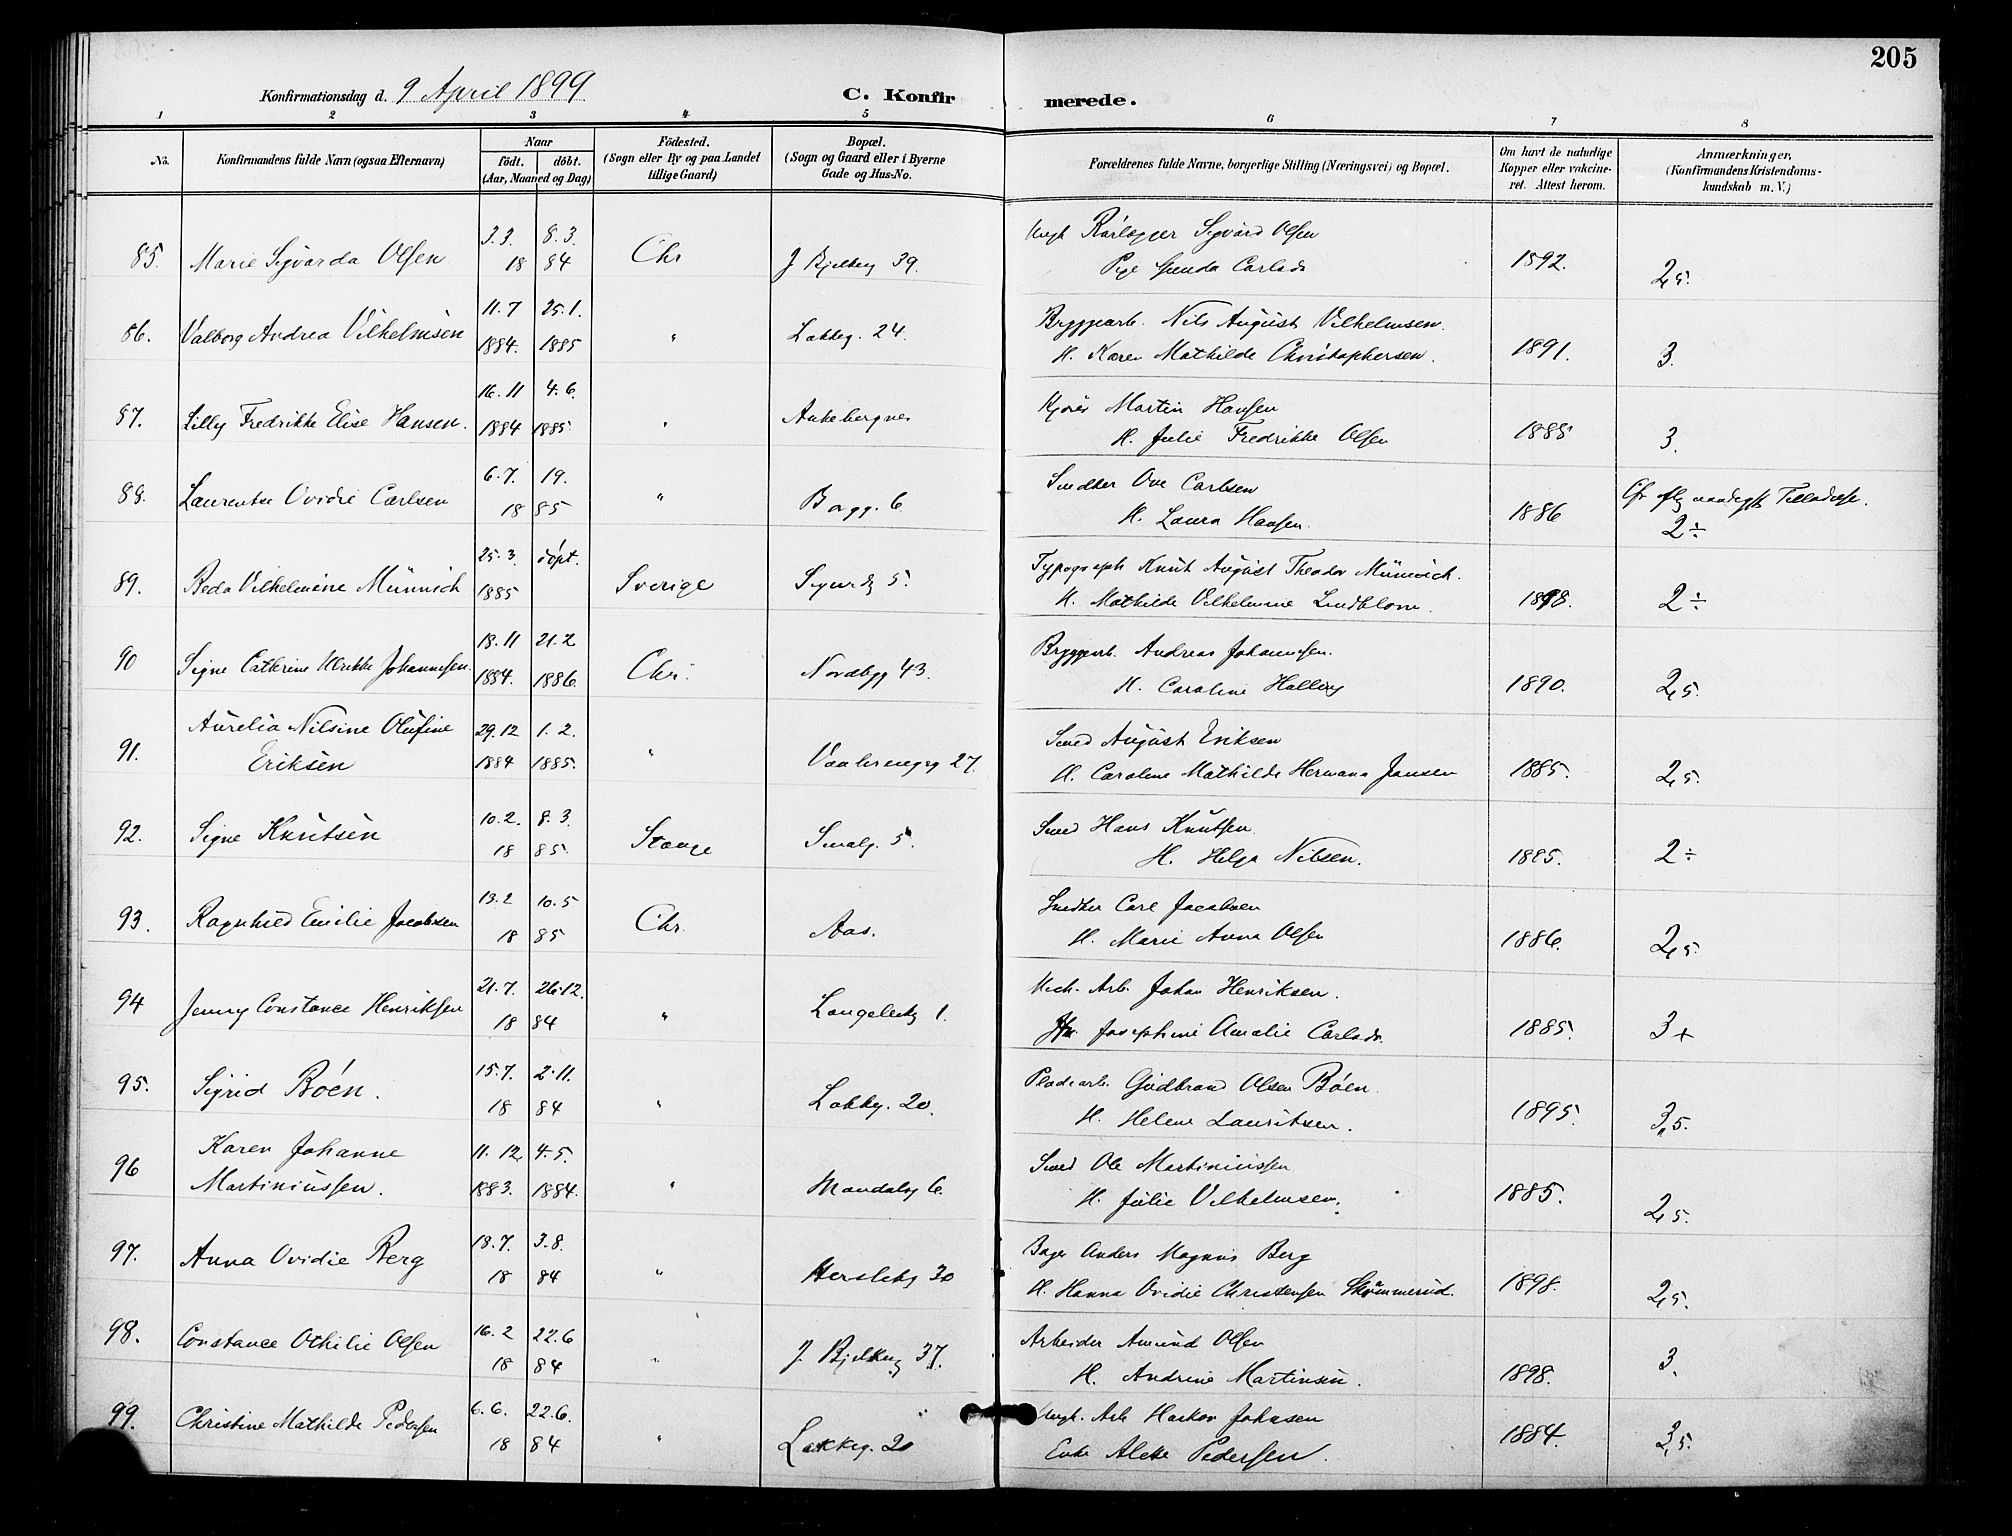 205
Konfirmationsdag d. 9 April 1899.
C. Konfirmerede.
1 2 3 4 5 6 7 8
No. Konfirmandens fulde Navn (ogsaa Efternavn) Naar født. døbt. (Aar, Maaned og Dag) Fødested. (Sogn eller By og paa Landet tillige Gaard) Bopæl. (Sogn og Gaard eller i Byerne Gade og Hus-No. Forældrenes fulde Navne, borgerlige Stilling (Næringsvei) og Bopæl. Om havt de naturlige Kopper eller vakcineret. Attest herom. Anmærkninger, (Konfirmandens Kristendomskundskab m. V.)
3.3. 8.3. Ungk Sigvard Olsen
85. Marie Sigvarda Olsen 18 84 Chr J Bjelkeg 39. Pige Gunda Carlsdr 1892. 2,5.
11.7 25.1. Bryggearb. Nils August Vilhelmsen.
86. Valborg Andrea Vilhelmsen 1884. 1885 " Lakkeg. 24. H. Karen Mathilde Christophersen. 1891. 3.
16.11 4.6. Martin Hansen
87. Lilly Fredrikke Elise Hansen. 1884 1885 " H. Julie Fredrikke Olsen 1885 3.
6.7. 19. Ove Carlsen
88. Laurentse Ovidie Carlsen 18 85 " Borgg. 6 H. Laura Hansen. 1886 2÷
25.3. døpt. Typograph Knut August Theodor Münnich.
89. Beda Vilhelmine Münnich 1885 Sverige Sigurdg 5. H. Mathilde Vilhelmine Lindblom. 1898. 2÷
18.11 21.2 Bryggearb. Andreas Johannesen.
90 Signe Cathrine Ulrikke Johannesen. 1884. 1886. Chr. Nordbyg 43. H. Caroline Halling 1890. 2,5.
Aurelia Nilsine Olufine 29.12 1.2. Smed August Eriksen
91. Eriksen 1884 1885. " Vaalerengeg 27. H. Caroline Mathilde Hermana Jansen 1885. 2,5.
10.2. 8.3. Smed Hans Knutsen
92. Signe Knutsen 18 85. Stange Smalg. 5. H. Helga Nilsen. 1885. 2÷
13.2 10.5 Carl Jacobsen
93. Ragnhild Emilie Jacobsen 18 85 Chr Aas. H. Marie Anna Olsen 1886. 2,5.
21.7. 26.12. Mech. Arb. Johan Henriksen.
94 Jenny Constance Henriksen 18 84 " Langeleikg 1. Josephine Amalie Carlsdr. 1885. 3+
15.7. 2.11. Pladearb. Gudbrand Olsen Bøen.
95. Sigrid Bøen. 18 84 " Lakkg. 20. H. Helene Lauritsen. 1895. 3,5.
Karen Johanne 11.12. 4.5. Smed Ole Martiniussen
96 Martiniussen. 1883. 1884. " Mandalsg 6. H. Julie Vilhelmsen. 1885. 2,5.
18.7. 3.8. Bager Anders Magnus Berg
97. Anna Ovidie Berg 18 84 " Herslebsg 30 H. Hanna Ovidie Christensen Skømmerud. 1898. 2,5.
16.2 22.6 Arbeider Amund Olsen
98. Constance Othilie Olsen 18 84 " J. Bjelkeg 37. H. Andrine Martinsen. 1898. 3.
6.6. 22.6. Ungk. Arb Haakon Johnsen
99. Christine Mathilde Pedersen 18 84 " Lakkeg. 20 Enke Alette Pedersen. 1884. 3,5.